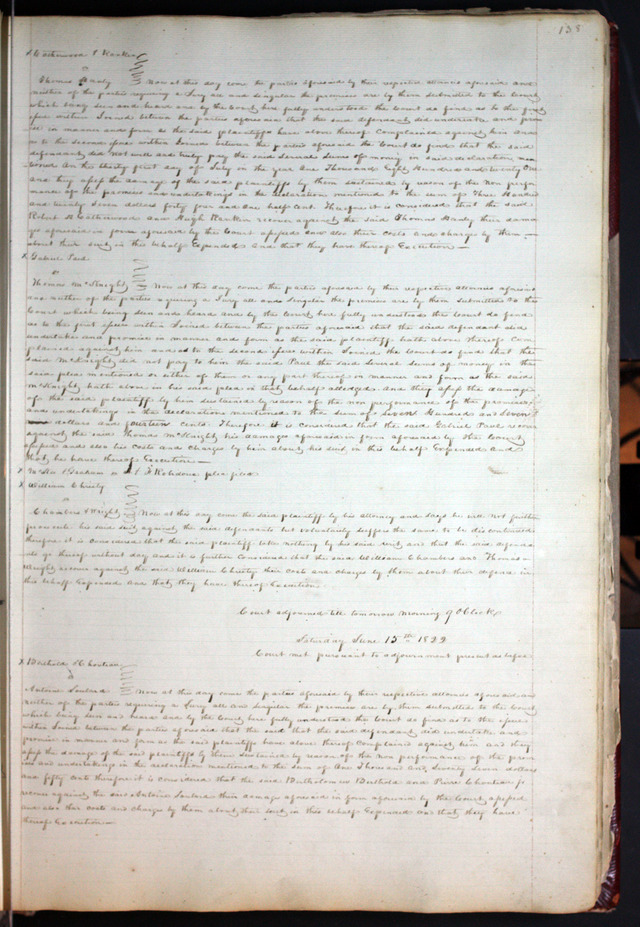 135
Catherwood & Rankin
Thomas Hanly Now at this day come the parties aforesaid by their respected attornies aforesaid and
neither of the parties requiring a Jury all and singular the premises are by them submitted to the Court
which being seen and heard and by the Court here fully understood the Court do find as to the first
issue within Joined between the parties aforesaid that the said defendant did undertake and prom
ise in manner and form as the said plaintiffs have above thereof Complained against him and
as to the second issue within Joined between the parties aforesaid the Court do find that the said
defendant did not well and truly pay the said several sums of money in said declaration men
tioned on the thirty first day of July in the year One Thousand Eight Hundred and twenty One
and they assess the damages of the said plaintiffs by them sustained by reason of the Non perfor
mance of the promises and undertakings in the declaration mentioned to the sum of Three Hundred
and twenty seven dollars forty four and one half Cent. Therefore it is considered that the said
Robert H Catherwood and Hugh Rankin recover against the said Thomas Hanly their dama
ges aforesaid in form aforesaid by the Court assessed and also their costs and charges by them
about their suit in this behalf Expended and that they have thereof Execution
Gabriel Paul
vs
Thomas McKnight Now at this day come the parties aforesaid by their respective attornies aforesaid
and neither of the parties requiring a Jury all and Singular the premises are by them submitted to the
Court which being seen and heard and by the Court here fully understood the Court do find
as to the first issue within Joined between the parties aforesaid that the said defendant did
undertake and promise in manner and form as the said plaintiff hath above thereof Com
plained against him and as to the second issue within Joined the Court do find that the
said McKnight did not pay to him the said Paul the said several sums of money in the
said pleas mentioned or either of them or any part thereof in manner and form as the said
McKnight hath above in his said plea in that behalf alledged. And they assess the damage
of the said plaintiff by him sustained by reason of the non performance of the promises
and undertakings in the declaration mentioned to the sum of Seven Hundred and Seven
dollars and fourteen cents. Therefore it is considered that the said Gabriel Paul recover
against the said Thomas McKnight his damages aforesaid in form aforesaid by the Court
assessed and also his costs and charges by him about his suit in this behalf Expended and
that he have thereof Execution
Graham vs F Robidoux plea filed
William Christy
vs
Chambers & Wright Now at this day came the said plaintiff by his attorney and says he will not further
prosecute his said suit against the said defendants but voluntarily suffers the same to be discontinued
therefore it is considered that the said plaintiff take nothing by his said writ and that the said defend
ants go thereof without day and it is further Considered that the said William Chambers and Thomas
Wright recover against the said William Christy their costs and charges by them about their defence in
this behalf Expended and that they have thereof Execution
Court adjourned till tomorrow morning 9 OClock
Saturday June 15th 1822
Court met pursuant to adjournment present as before
Berthold & Chouteau
vs
Antoine Soulard Now at this day came the parties aforesaid by their respective attornies aforesaid and
neither of the parties requiring a Jury all and singular the premises are by them submitted to the Court
which being seen and heard and by the Court here fully understood the Court do find as to the issue
within Joined between the parties aforesaid that the said that the said defendant did undertake and
promise in manner and form as the said plaintiffs have above thereof complained against him and they
assess the damage of the said plaintiffs by them sustained by reason of the non performance of the prom
ises and undertakings in the declaration mentioned to the sum of One Thousand and Seventy Seven dollars
and fifty therefore it is considered that the said Bartholomew Berthold and Pierre Chouteau Jr
recover against the said Antoine Soulard their damage aforesaid in form aforesaid by the Court assessed
and also their costs and charges by them about their suit in this behalf Expended and that they have
thereof Execution